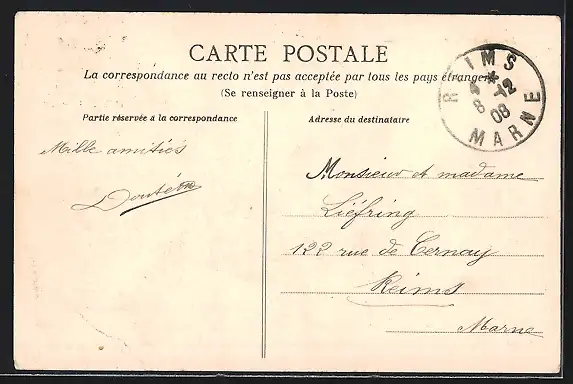 CARTE POSTALE
La correspondance au recto n'est pas acceptée par tous les pays étrangers
(Se renseigner à la Poste)
Partie réservée à la correspondance
Adresse du destinataire
REIMS
4 * 
8 -12
08
MARNE
Mille amitiés
Monsieur et madame
Liéfring
122 rue de Cernay
Reims
Marne